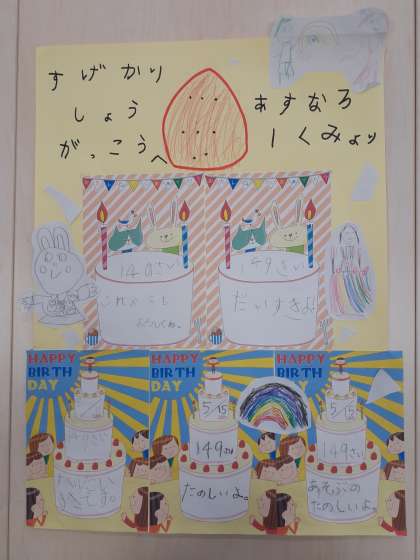 すげかり
しょう
がっこうへ
あすなろ
1くみより
149さい
149さい
だいすきよ
HAPPY
BIRTH
DAY
HAPPY
BIRTH
DAY
5/15
149さい
たのしいよ。
HAPPY
BIRTH
DAY
5/15
149さい
あそぶの
たのしいよ。